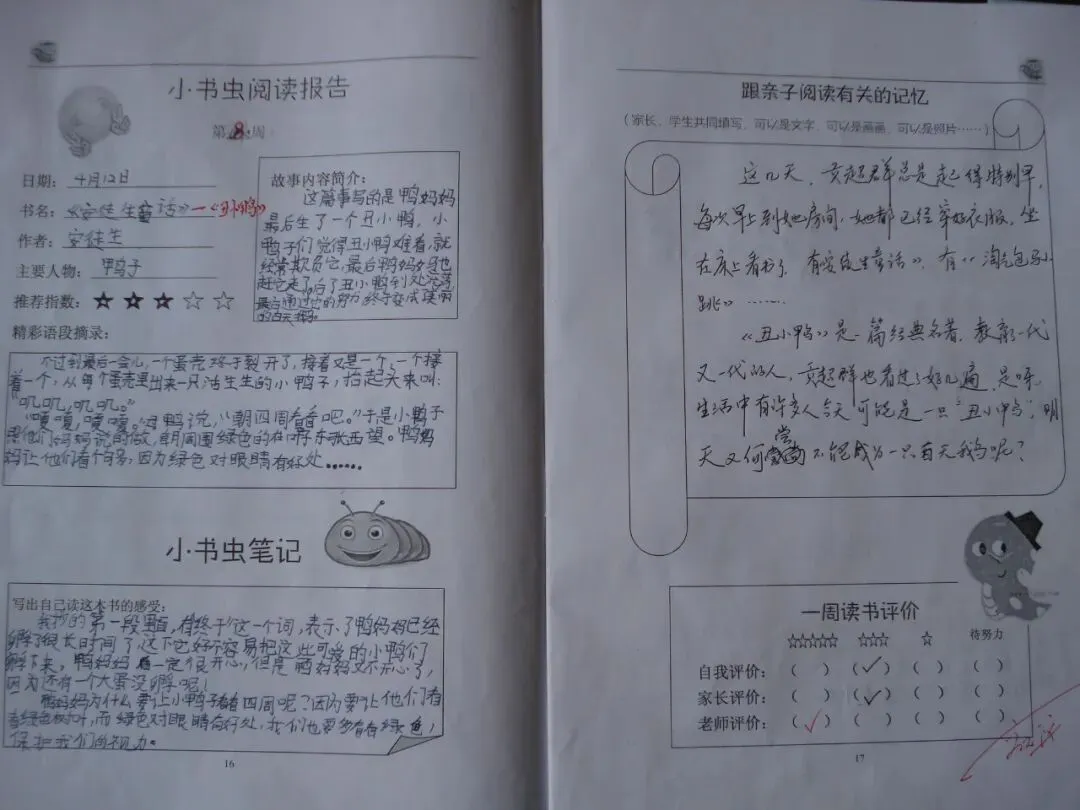 小书虫阅读报告
第8周
日期：4月12日
书名：《安徒生童话》—《丑小鸭》
作者：安徒生
主要人物：鸭子
推荐指数：★★★☆☆
故事内容简介：
这篇事写的是鸭妈妈
最后生了一个丑小鸭，小
鸭子们觉得丑小鸭难看，就
经常欺负它，最后鸭妈妈也
赶它走了，后了丑小鸭到处
最后通过它的努力终于变成美丽
的白天鹅。
精彩语段摘录：
不过到最后一会儿，一个蛋壳终于裂开了，接着又是一个，一个接
着一个，从每个蛋壳里出来一只活生生的小鸭子，抬起头来叫：
“叽叽，叽叽。”
“嘎嘎，嘎嘎。”母鸭说，“朝四周看看吧。”于是小鸭子
照他们妈妈说的做，朝周围绿色的东张西望。鸭妈
妈让他们看个够，因为绿色对眼睛有好处……
小书虫笔记
写出自己读这本书的感受：
我抄的第一段里面，有“终于”这一个词，表示了鸭妈妈已经
孵了很长时间了，这下它好不容易把这些可爱的小鸭们
孵下来，鸭妈妈一定很开心，但是鸭妈妈又不开心了，
因为还有一个大蛋没孵呢！
鸭妈妈为什么要让小鸭子看看四周呢？因为要让他们看
看绿色树叶，而绿色对眼睛有好处，我们也要多看看绿色，
保护我们的视力。
16
跟亲子阅读有关的记忆
（家长、学生共同填写，可以是文字，可以是画画，可以是照片……）
这几天，贡超群总是起得特别早，
每次早上到她房间，她都已经穿好衣服，坐
在床上看书了，有《安徒生童话》，有《淘气包马小
跳》……
《丑小鸭》是一篇经典名著，教影一代
又一代的人，贡超群也看过了好几遍，是呀，
生活中有许多人今天可能是一只“丑小鸭”，明
天又何尝不能成为一只白天鹅呢？
一周读书评价
☆☆☆☆☆ ☆☆☆ ☆ 待努力
自我评价：（ ）（✓）（ ）（ ）
家长评价：（ ）（✓）（ ）（ ）
老师评价：（✓）（ ）（ ）（ ）
17